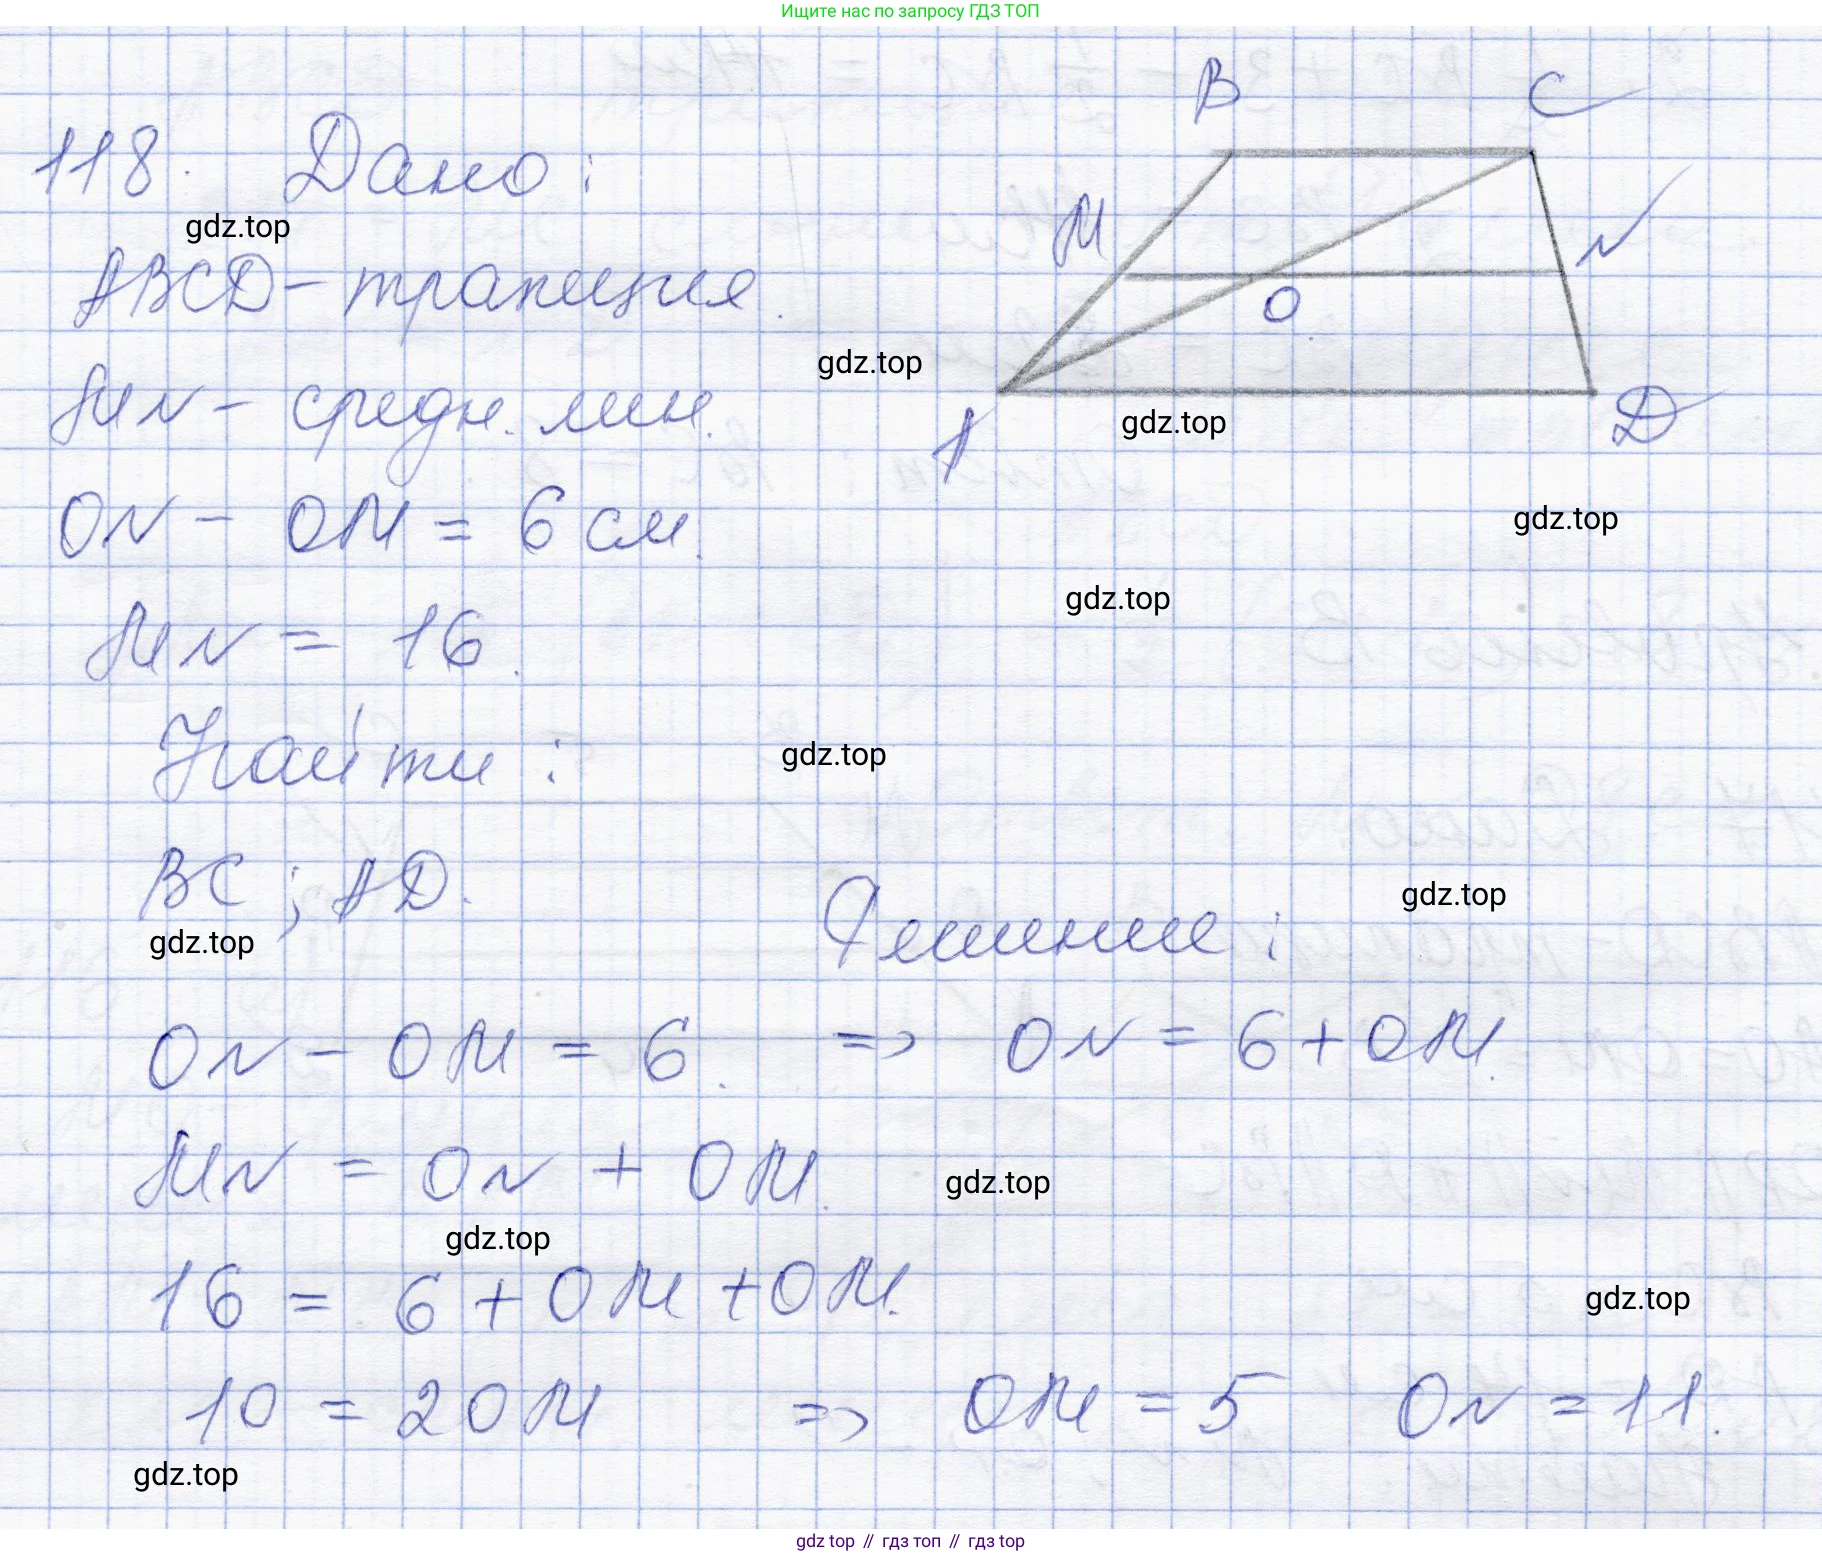 Ищите нас по запросу ГДЗ ТОП
B C
118. Дано:
M N
gdz.top
ABCD - трапеция.
O
gdz.top
MN - средн. лин.
A gdz.top D
ON - OM = 6 см.
gdz.top
gdz.top
MN = 16.
Найти:
gdz.top
BC; AD.
gdz.top
Решение:
gdz.top
ON - OM = 6. => ON = 6 + OM.
MN = ON + OM.
gdz.top
gdz.top
16 = 6 + OM + OM.
gdz.top
10 = 2OM => OM = 5 ON = 11.
gdz.top
gdz top // гдз топ // gdz top